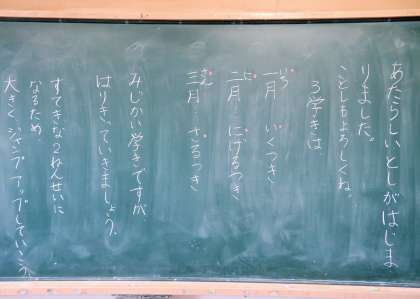 あたらしいとしがはじま
りました。
ことしもよろしくね。
3学きは
一月 いくつき
二月 にげるつき
三月 さるつき
みじかい学きですが
はりきっていきましょう。
すてきな2ねんせいに
なるため、
大きくジャンプアップしていこう。